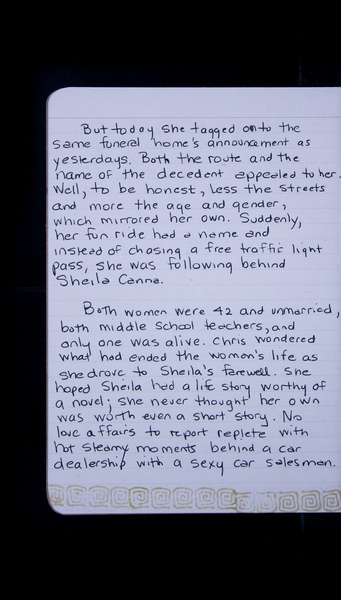 But today she tagged onto the
same funeral home's announcement as
yesterdays. Both the route and the
name of the decedent appealed to her.
Well, to be honest, less the streets
and more the age and gender,
which mirrored her own. Suddenly,
her fun ride had a name and
instead of chasing a free traffic light
pass, she was following behind
Sheila Canna.
Both women were 42 and unmarried,
both middle school teachers, and
only one was alive. Chris wondered
what had ended the women's life as
she drove to Sheila's farewell. She
hoped Sheila had a life story worthy of
a novel; she never thought her own
was worth even a short story. No
love affairs to report replete with
hot steamy moments behind a car
dealership with a sexy car salesman.